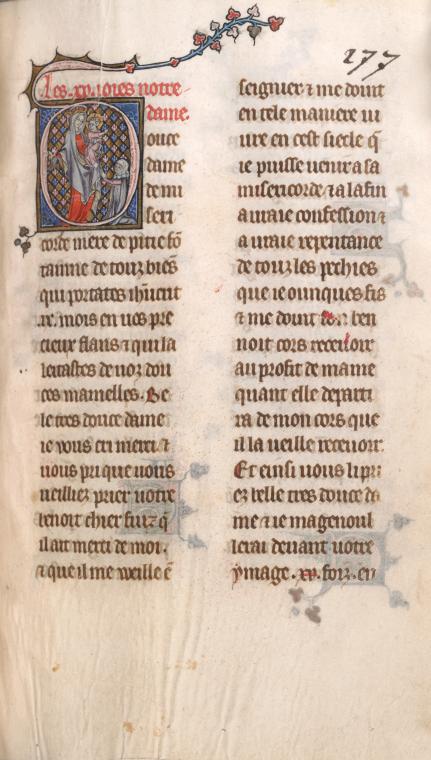 277
Les .xv. ioies nostre
dame.
Douce
dame
de mi
seri
corde mere de pitie fō
tainne de touz biēs
qui portates ih̄ucrit
.ix. mois en uos pre
cieux flans ⁊ qui la
letastes de uoz dou
ces mamelles. Be
le tres douce dame
ie vous cri merci ⁊
uous pri que uous
ueilliez prier uotre
benoit chier fuiz q̄
il ait merci de moi.
⁊ que il me weille ē
seignier ⁊ me doint
en tele maniere ui
ure en cest siecle q̄
ie puisse uenir a sa
misericorde. ⁊ a la fin
a uraie confession ⁊
a uraie repentance
de touz les pechies
que ie ounques fis
⁊ me doint son ben
noit cors receuoir
au profit de mame
quant elle departi
ra de mon cors que
il la ueille receuoir.
Et einsi uous lipri
ez belle tres douce da
me ⁊ ie magenoul
lerai deuant uotre
ymage .xv. foiz. en